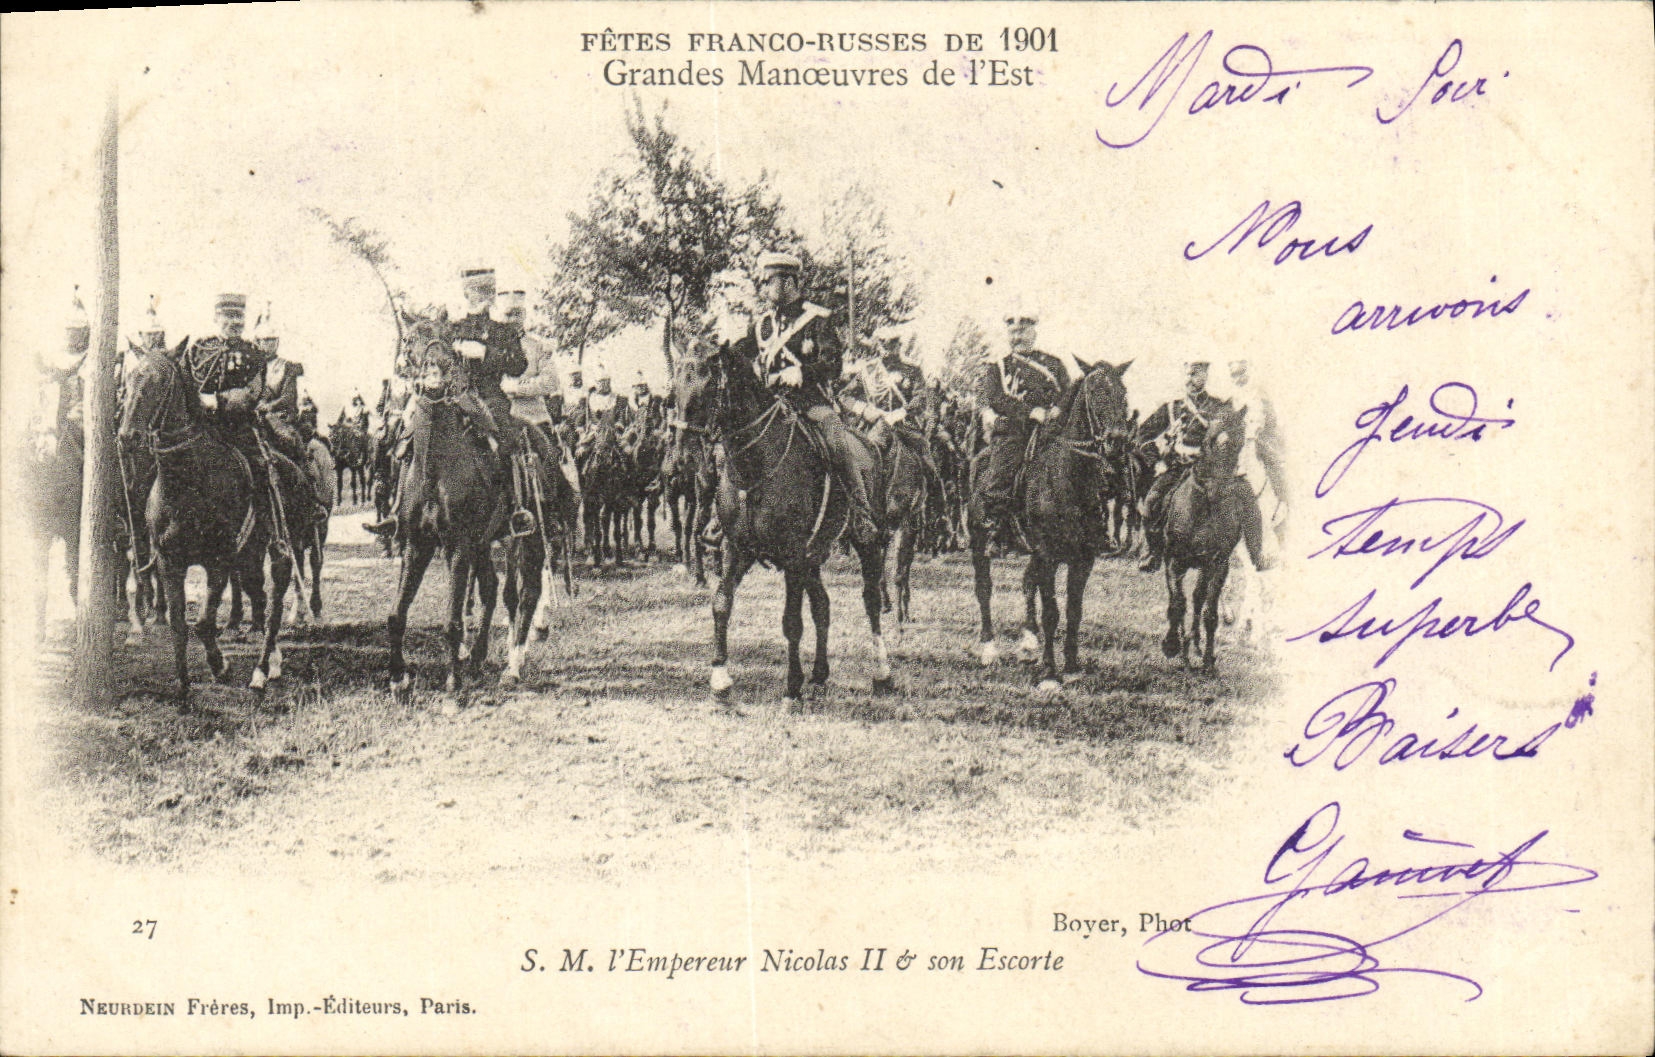 FÊTES FRANCO-RUSSES DE 1901
Grandes Manœuvres de l'Est
Mardi Soir
Nous
arrivons
Jeudi
temps
superbe
Baisers
27
Boyer, Phot
S. M. l'Empereur Nicolas II & son Escorte
NEURDEIN Frères, Imp.-Éditeurs, Paris.